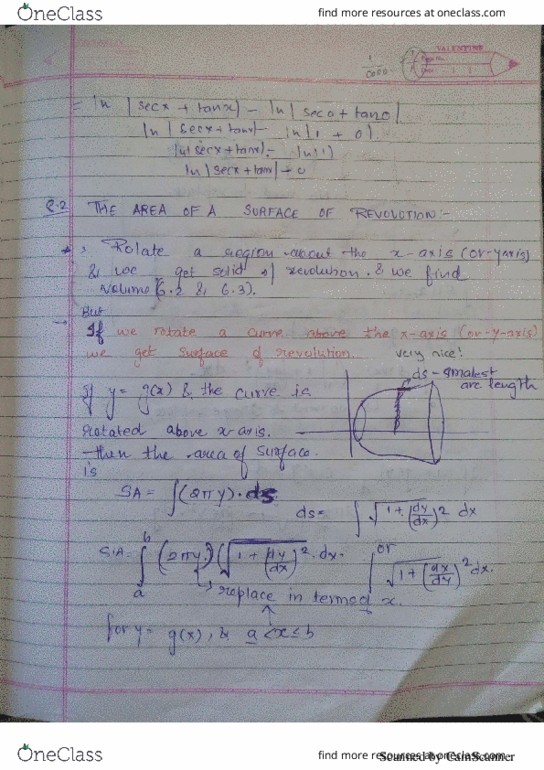 OneClass
find more resources at oneclass.com
VALENTINE
1
cosx
= ln |secx + tanx| - ln |sec0 + tan0|
ln |secx + tanx| - ln |1 + 0|
ln |secx + tanx| - ln |1|
ln |secx + tanx| - 0
THE AREA OF A SURFACE OF REVOLUTION :-
Rotate a region about the x-axis (or-yaxis)
& we get solid of revolution. & we find
volume (6.2 & 6.3).
But
→ If we rotate a curve above the x-axis (or-y-axis)
we get surface of revolution.
very nice!
ds - smallest
arc length
If y = g(x) & the curve is
rotated above x-axis.
then the area of surface
is
SA = ∫(2πy)·ds
ds = ∫ √1 + (dy/dx)² dx
or
∫ √1 + (dx/dy)² dx.
S.A = ∫ₐᵇ (2πy) (√1 + (dy/dx)². dx.
→ replace in terms x.
for y = g(x), & a < x ≤ b
OneClass
find more resources at oneclass.com
Scanned by CamScanner